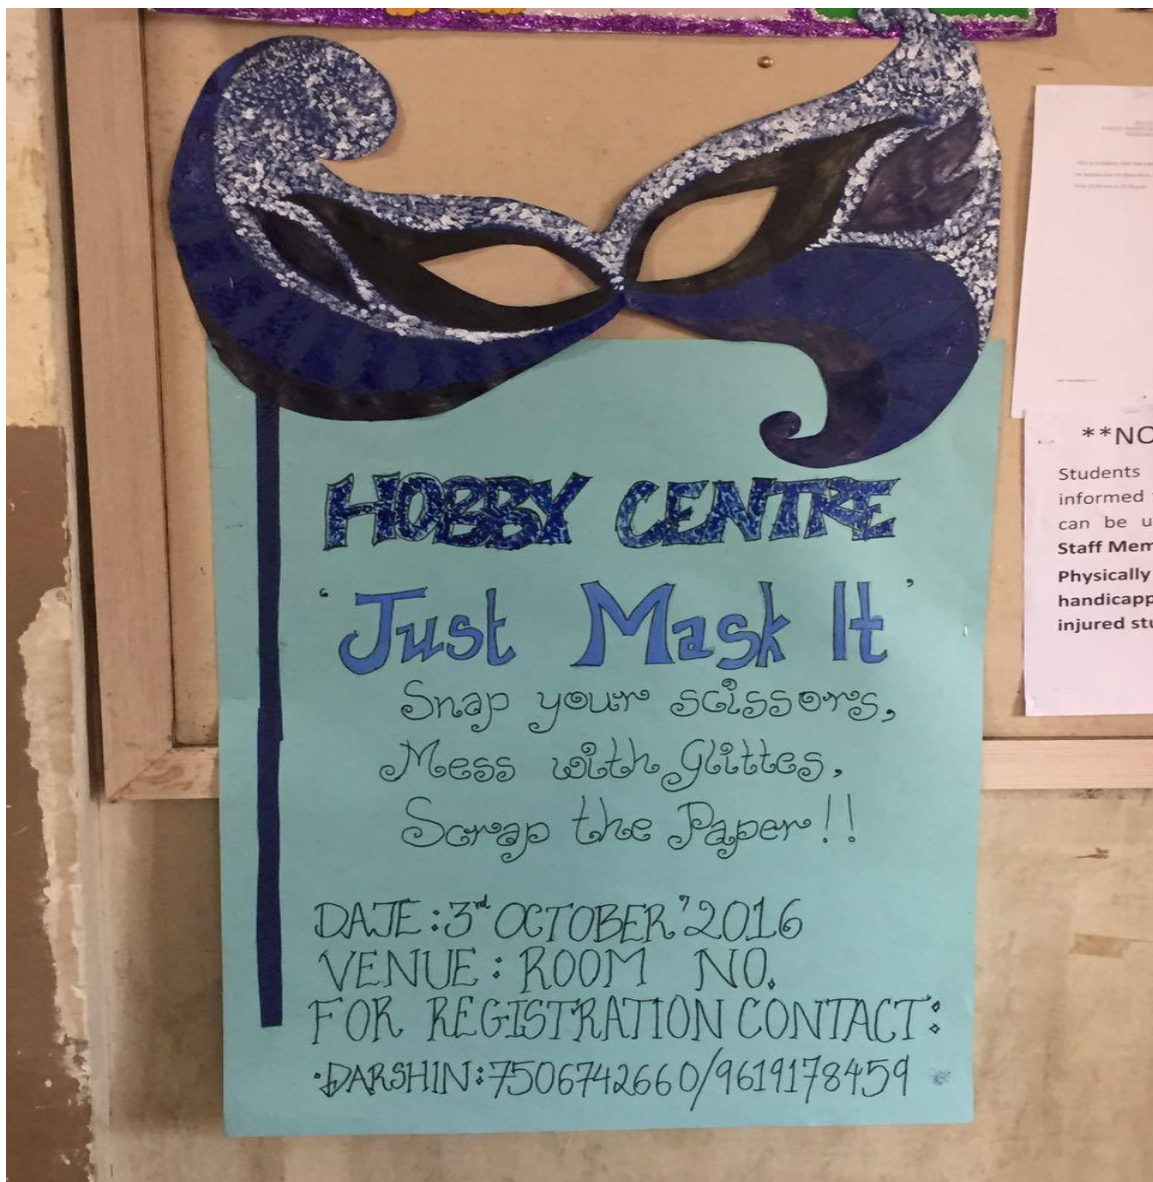 HOBBY CENTRE
'Just Mask It'
Snap your scissors,
Mess with Glittes,
Scrap the Paper!!
DATE: 3rd OCTOBER'2016
VENUE: ROOM NO.
FOR REGISTRATION CONTACT:
·DARSHIN: 7506742660/9619178459
**NO
Students
informed
can be u
Staff Mem
Physically
handicapp
injured stu